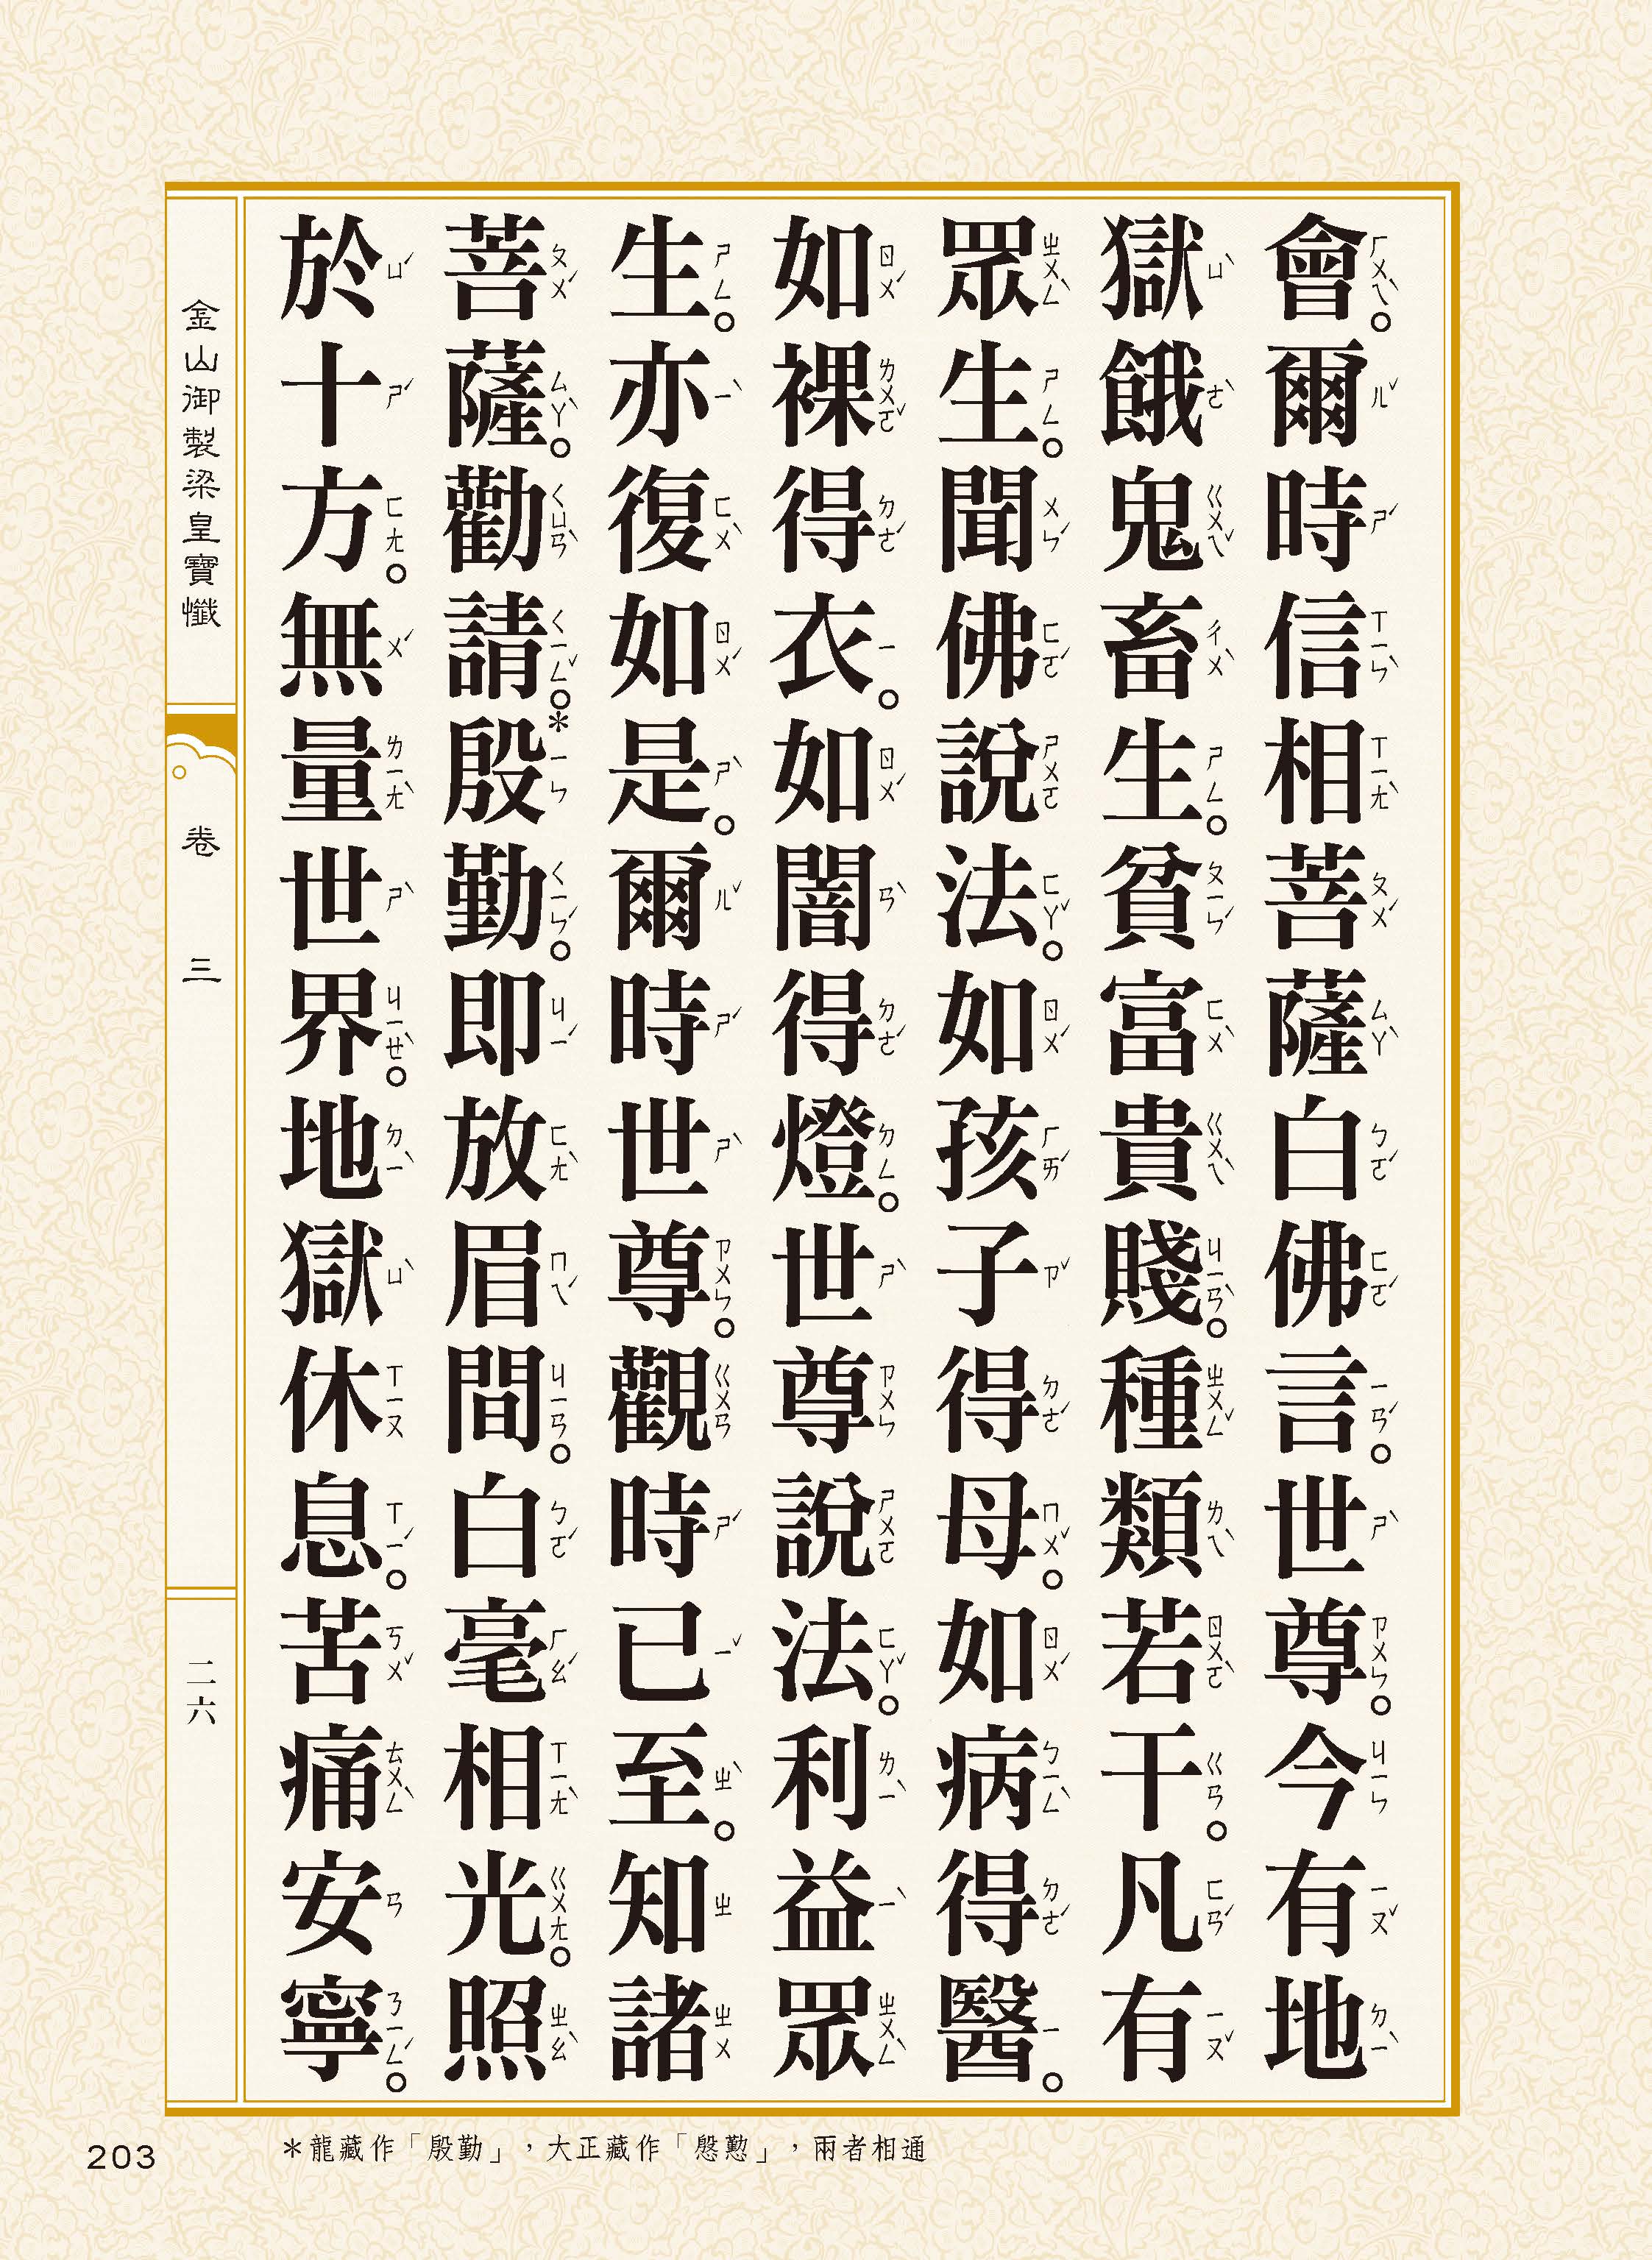 會。爾時信相菩薩白佛言。世尊。今有地
獄餓鬼畜生。貧富貴賤。種類若干。凡有
眾生。聞佛說法。如孩子得母。如病得醫。
如裸得衣。如闇得燈。世尊說法。利益眾
生。亦復如是。爾時世尊。觀時已至。知諸
菩薩。勸請。*殷勤。即放眉間。白毫相光。照
於十方。無量世界。地獄休息。苦痛安寧。
金山御製梁皇寶懺
卷三
二六
203
＊龍藏作「殷勤」，大正藏作「慇懃」，兩者相通